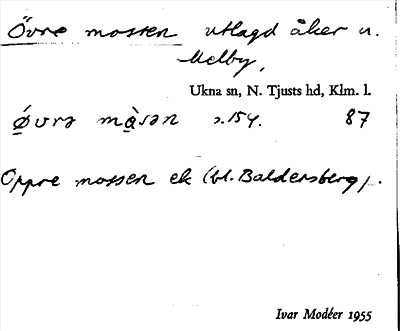 Övre mossen utlagd åker u.
Melby,
Ukna sn, N. Tjusts hd, Klm. l.
ǿvrə màsən s. 154. 87
Oppre mossen ek (bl. Baldersberg).
Ivar Modéer 1955